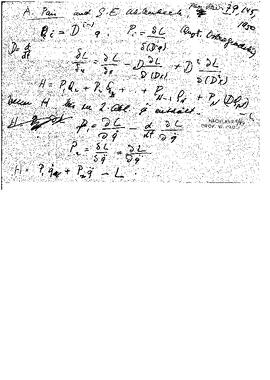 A. Pais and G.E. Uhlenbeck, Phys. Rev. 79, 145,
1950
Q_i = D^{i-1} q ; P_i = δL/δ(D^i q) (Ostrogradsky)
D = d/dt δL/δq = ∂L/∂q - D ∂L/∂(Dq) + D²
H = P_1 Q_2 + P_2 Q_3 + + P_{N-1} P_N + P_N (DQ_N) - L
Wenn H bis zu 2. Abl. q̈ enthält.
H
P_1 = ∂L/∂q̇ - d/dt ∂L/∂q̈
P_2 = δL/δq̈ = ∂L/∂q̈
H = P_1 q̇ + P_2 q̈ - L.
NACHLASS
PROF. W. PAULI